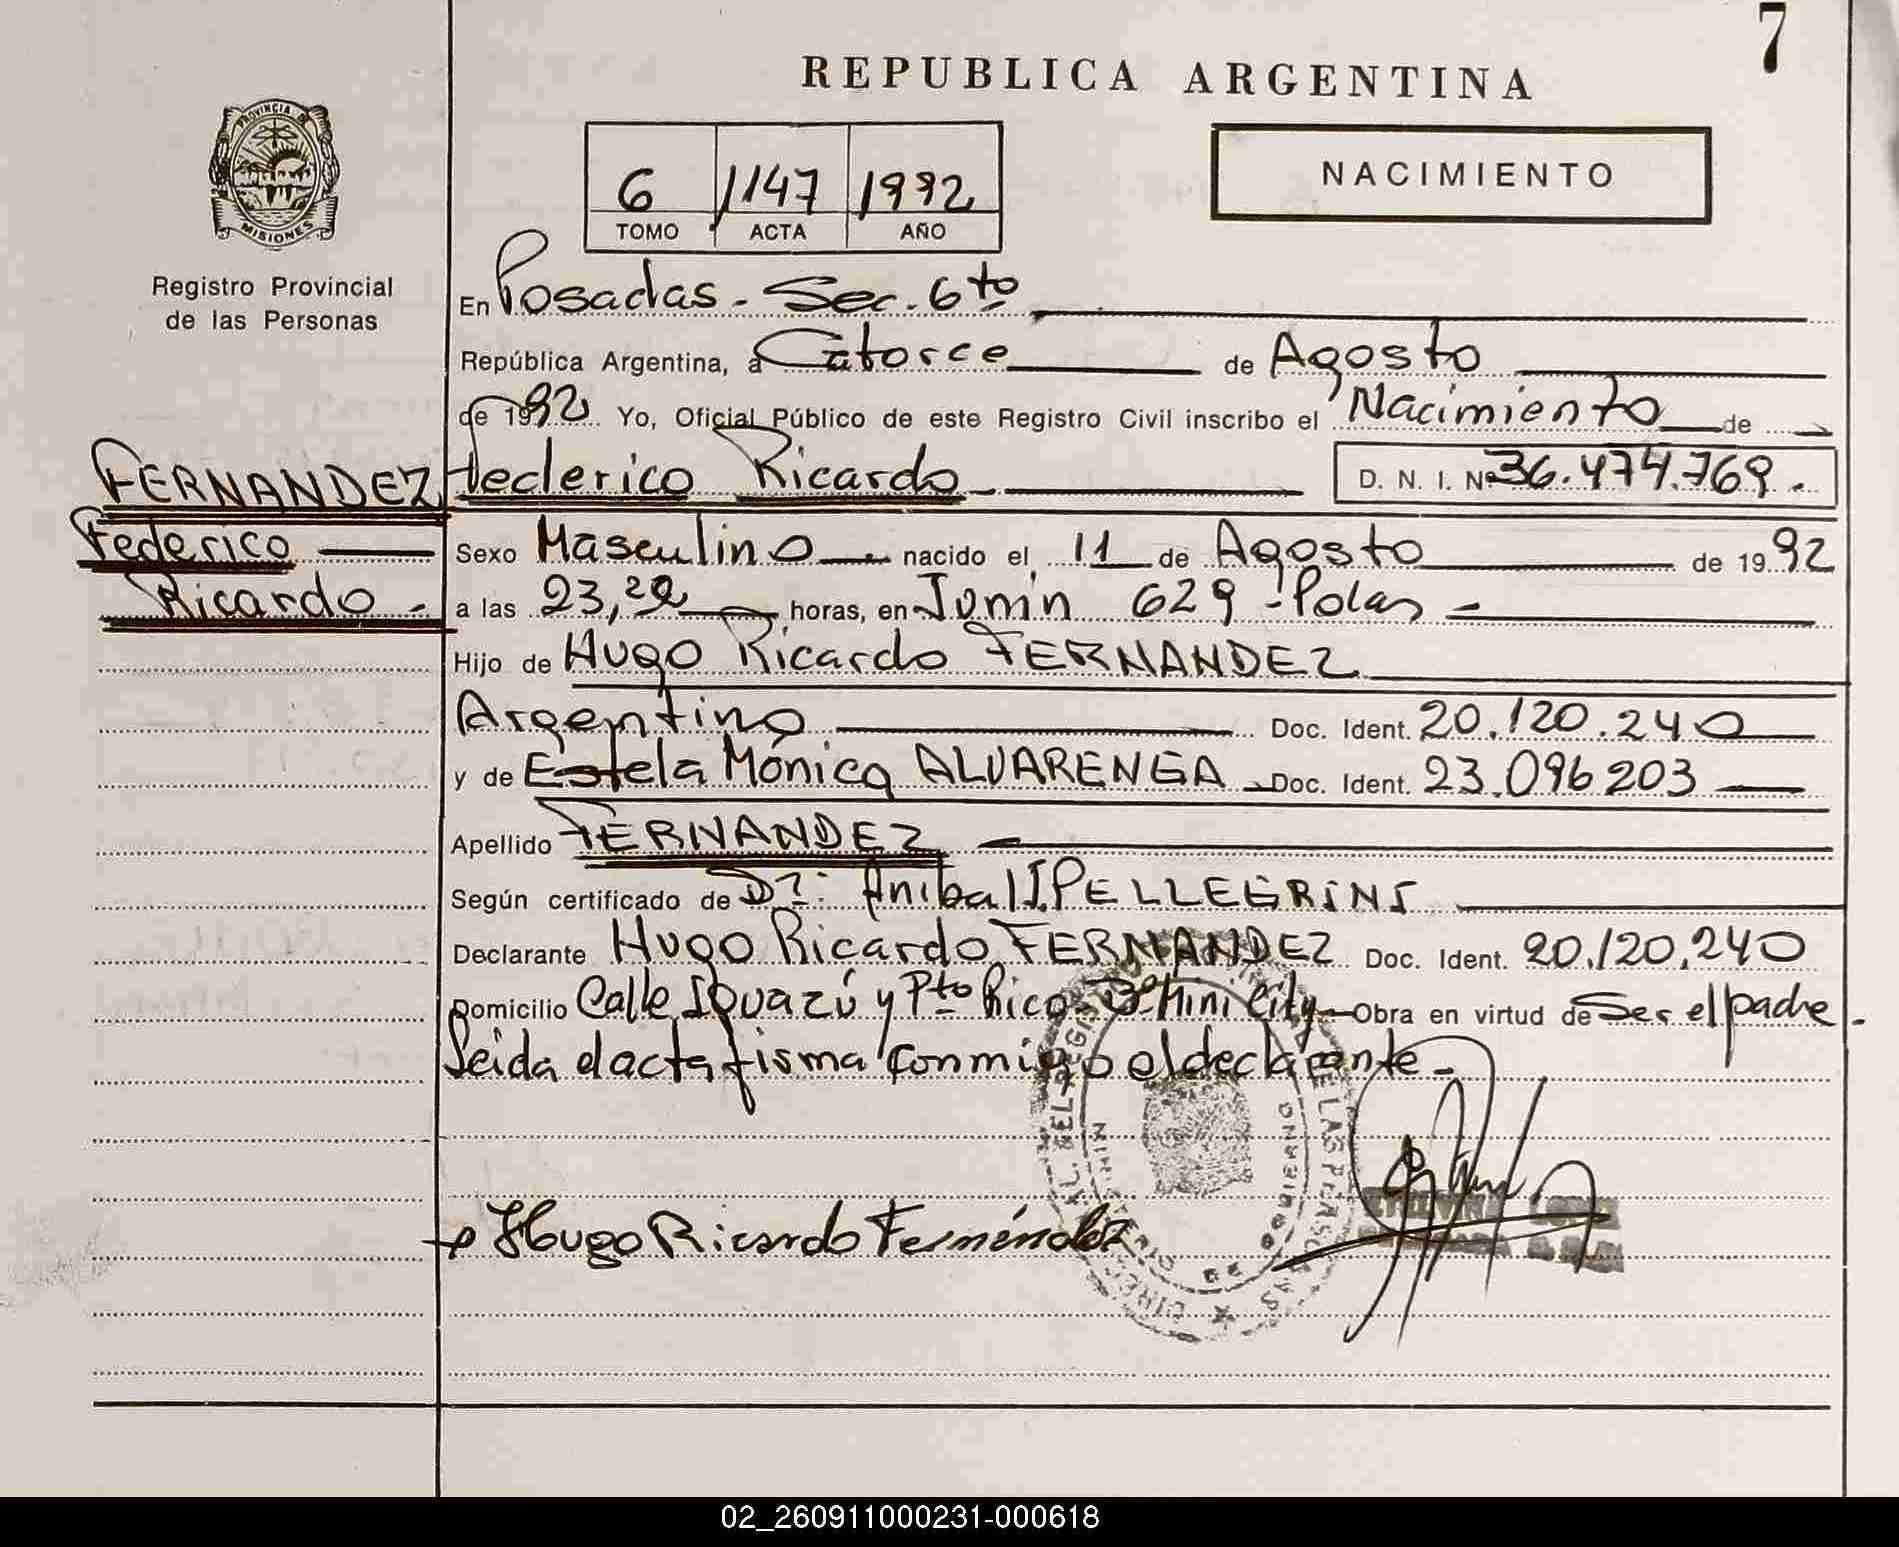 7
REPUBLICA ARGENTINA
PROVINCIA DE
MISIONES
6 1147 1992
TOMO ACTA AÑO
NACIMIENTO
Registro Provincial
de las Personas
En Posadas - Sec. 6to
República Argentina, a Catorce de Agosto
de 1992 Yo, Oficial Público de este Registro Civil inscribo el Nacimiento de
FERNANDEZ
Federico
Ricardo -
Federico Ricardo D. N. I. Nº 36.474.769.
Sexo Masculino nacido el 11 de Agosto de 1992
a las 23,20 horas, en Junin 629 -
Hijo de Hugo Ricardo FERNANDEZ
Argentino Doc. Ident. 20.120.240
y de Estela Mónica ALVARENGA Doc. Ident. 23.096203
Apellido FERNANDEZ
Según certificado de Dr. Anibal J. PELLEGRINI
Declarante Hugo Ricardo FERNANDEZ Doc. Ident. 20.120.240
Domicilio Calle Iguazú y Pto Rico Bº Mini City Obra en virtud de Ser el padre -
Leida el acta firma conmigo el declarante -
Hugo Ricardo Fernández
02_260911000231-000618